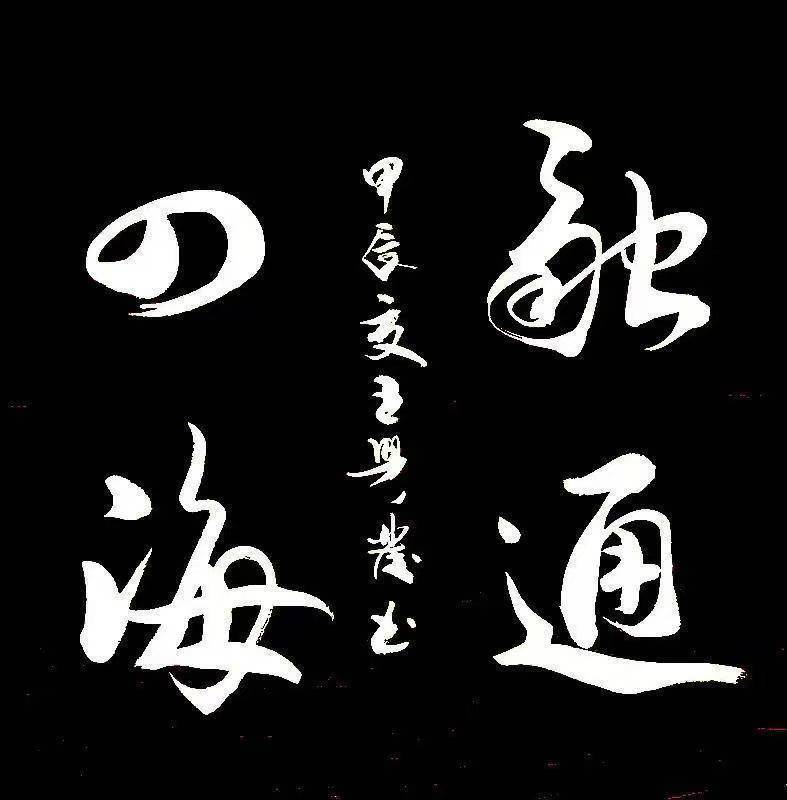 融通
四海
甲辰夏王興書